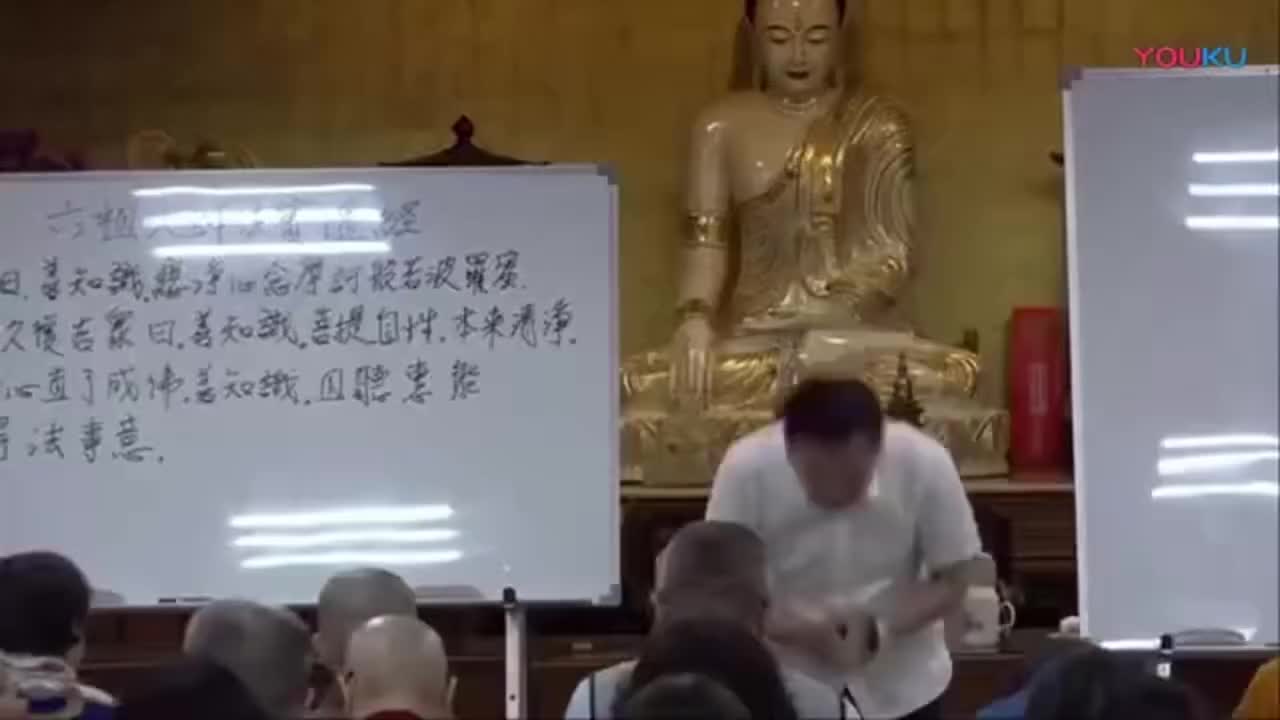 YOUKU
六祖 經
曰.善知識,總淨心念摩訶般若波羅蜜.
久復告眾曰,善知識,菩提自性,本來清淨,
心直了成佛,善知識,且聽惠能
得法事意.